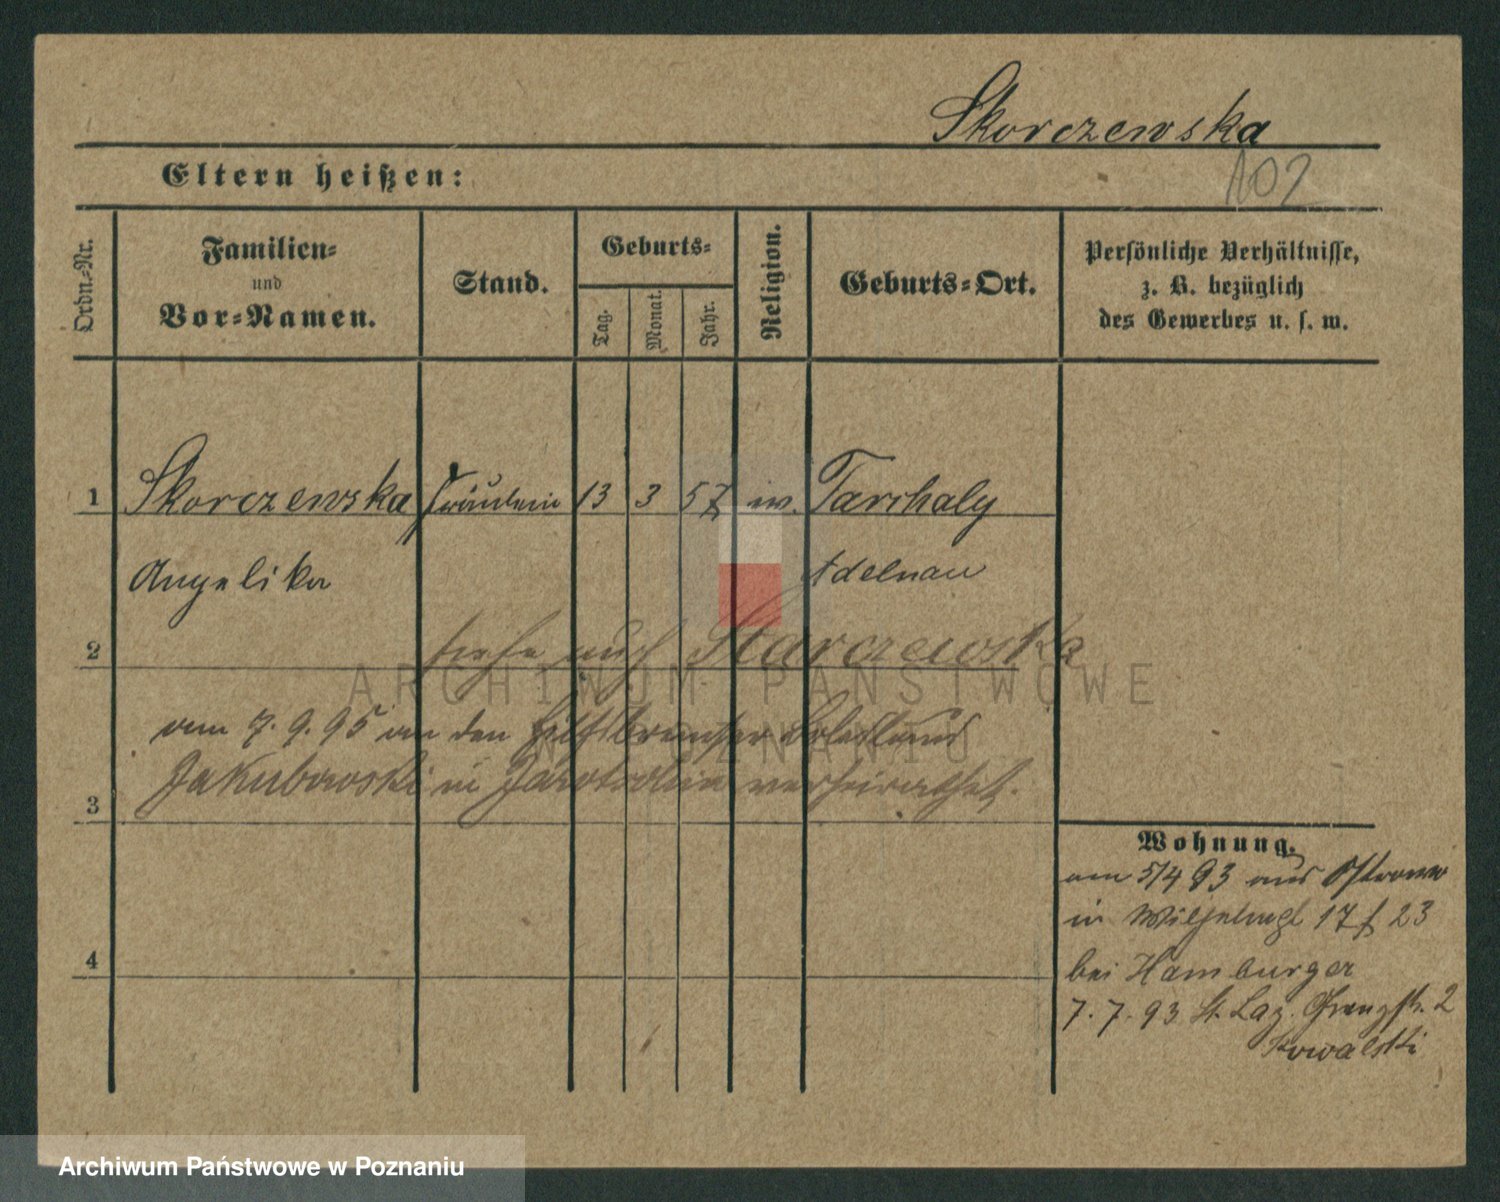 Skorczewska
102
Eltern heißen:
Ordn.-Nr.
Familien-
und
Vor-Namen.
Stand.
Geburts-
Tag.
Monat.
Jahr.
Religion.
Geburts-Ort.
Persönliche Verhältnisse,
z. B. bezüglich
des Gewerbes u. s. w.
1 Skorczewska Fräulein 13 3 57 Tarchaly
Angelika Adelnau
2 siehe auch Starczewska
ARCHIWUM PAŃSTWOWE
am 7.9.95 an den Hilfsbremser
W POZNANIU
Jakubowski in Jarotschin verheirathet.
3
Wohnung.
am 5/4 93 aus Ostrowo
in 17 23
4
bei Hamburger
7.7.93 St. Laz. Grenzstr. 2
Kowalski
Archiwum Państwowe w Poznaniu